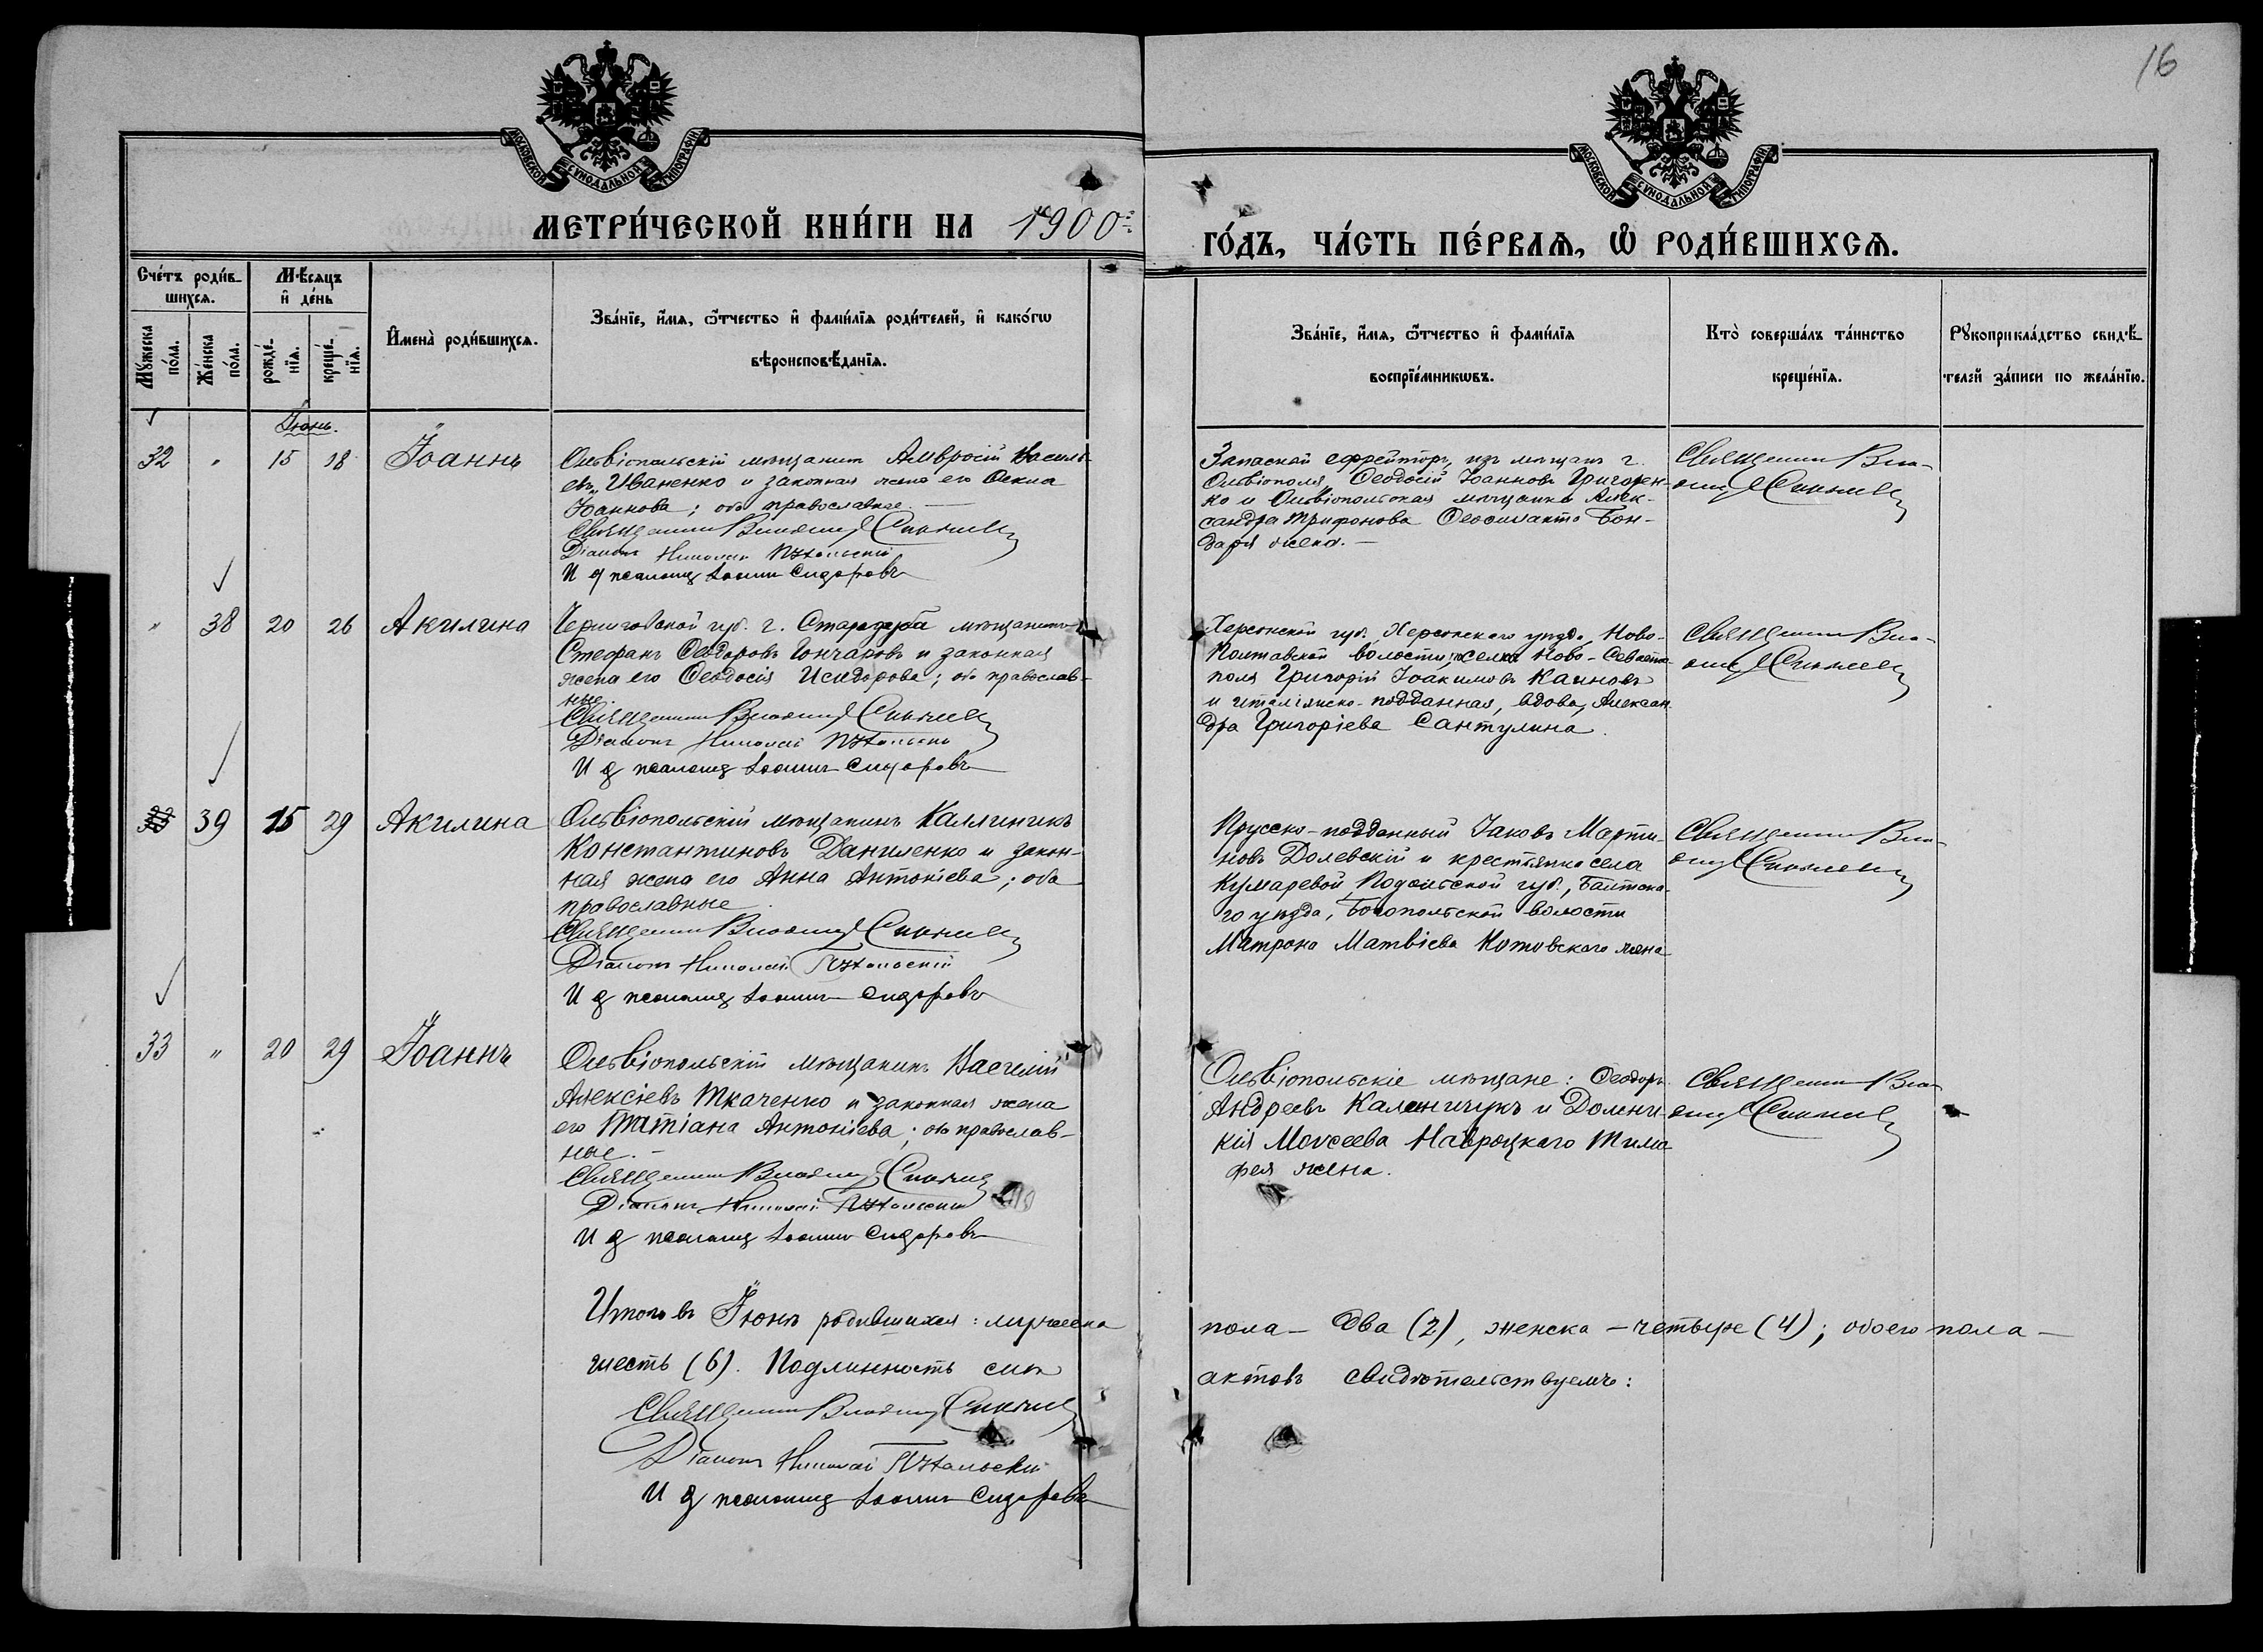 16
МОСКОВСКОЙ СѴНОДАЛЬНОЙ ТИПОГРАФІИ
МОСКОВСКОЙ СѴНОДАЛЬНОЙ ТИПОГРАФІИ
МЕТРИ́ЧЕСКОЙ КНИ́ГИ НА 1900
ГО́ДЪ, ЧА́СТЬ ПЕ́РВАЯ, Ѽ РОДИ́ВШИХСЯ.
Сче́тъ роди́в-
шихся.
Мѣ́сяцъ
и҆ де́нь
Мꙋ́жеска
по́ла.
Же́нска
по́ла.
рожде́-
нїя.
креще́-
нїя.
И҆мена̀ роди́вшихся.
Зва́нїе, и҆́мя, ѻ҆́тчество и҆ фами́лїя роди́телей, и҆ како́гѡ
вѣроисповѣ́данїя.
Зва́нїе, и҆́мя, ѻ҆́тчество и҆ фами́лїя
воспрїе́мникѡвъ.
Кто̀ соверша́лъ та́инство
креще́нїя.
Рꙋкоприкла́дство свидѣ́-
телей за́писи по жела́нїю.
Іюнь.
32 " 15 18 Іоаннъ
Ольвіопольскій мѣщанинъ Амвросій Василь-
евъ Иваненко и законная жена его Ѳекла
Іоаннова; оба православные.
Священникъ
Діаконъ Николай
И д псаломщ Іоаннъ Сидоровъ
Запасной ефрейторъ, изъ мѣщанъ г.
Ольвіополя, Ѳеодосій Іоанновъ Григорен-
ко и Ольвіопольская мѣщанка Алек-
сандра Трифонова Ѳеофилакта Бон-
даря жена.
Священникъ Вла-
" 38 20 26 Акилина
Черниговской губ. г. Стародуба мѣщанинъ
Стефанъ Ѳеодоровъ Гончаковъ и законная
жена его Ѳеодосія Исидорова; оба православ-
ные.
Священникъ
Діаконъ Николай
И д псаломщ Іоаннъ Сидоровъ
Херсонской губ. Херсонскаго уѣзда, Ново-
Полтавской волости, Ново-Севасто-
поля Григорій Іоакимовъ Каиновъ
и италіанско-подданная, вдова, Алексан
дра Григоріева Сантулина.
Священникъ Вла-
39 15 29 Акилина
Ольвіопольскій мѣщанинъ Каллиникъ
Константиновъ Даниленко и закон-
ная жена его Анна Антоніева; оба
православные.
Священникъ
Діаконъ Николай
И д псаломщ Іоаннъ Сидоровъ
Прусско-подданный Іаковъ Марти-
новъ Долевскій и крестьянка села
Кумаревой Подольской губ., Балтска-
го уѣзда, Богопольской волости
Матрона Матвіева Котовскаго жена
Священникъ Вла-
33 " 20 29 Іоаннъ
Ольвіопольскій мѣщанинъ Василій
Алексіевъ Ткаченко и законная жена
его Татіана Антоніева; оба православ-
ные.
Священникъ
Діаконъ Николай
И д псаломщ Іоаннъ Сидоровъ
Ольвіопольскіе мѣщане: Ѳеодоръ
Андреевъ Каленичукъ и Домни-
кія Моѵсеева Навроцкаго Тимо
фея жена.
Священникъ Вла-
Итого въ Іюнѣ родившихся: мужеска
пола - два (2), женска - четыре (4); обоего пола -
шесть (6). Подлинность сихъ
актовъ свидѣтельствуемъ:
Священникъ
Діаконъ Николай
И д псаломщ Іоаннъ Сидоровъ